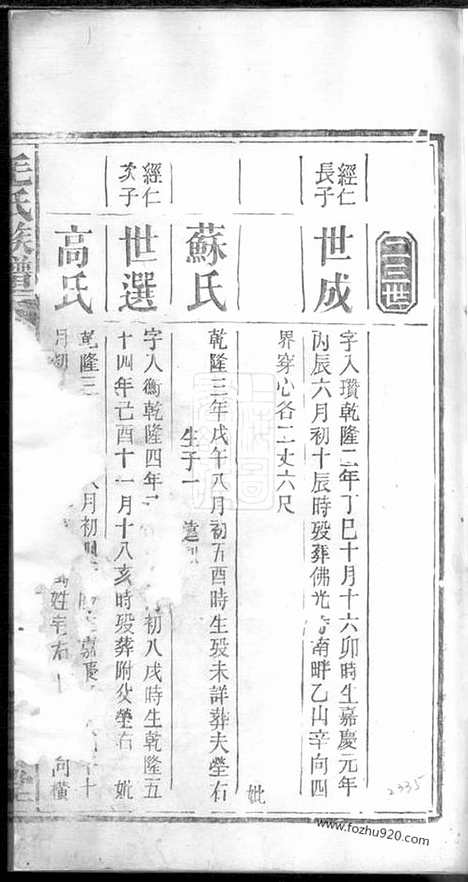 二三世
經仁
長子
世成
字入瓚乾隆二年丁巳十月十六卯時生嘉慶元年
丙辰六月初十辰時殁葬佛光 南畔乙山辛向四
界穿心各二丈六尺
妣
蘇氏
乾隆三年戊午八月初五酉時生殁未詳葬夫塋右
生子一
經仁
次子
世選
字入衡乾隆四年 初八戌時生乾隆五
十四年己酉十一月十八亥時殁葬附父塋右 妣
高氏
乾隆三 八月初 嘉慶 十
月初 姓宅右 向橫
毛氏族譜
2335
www.fozhu920.com